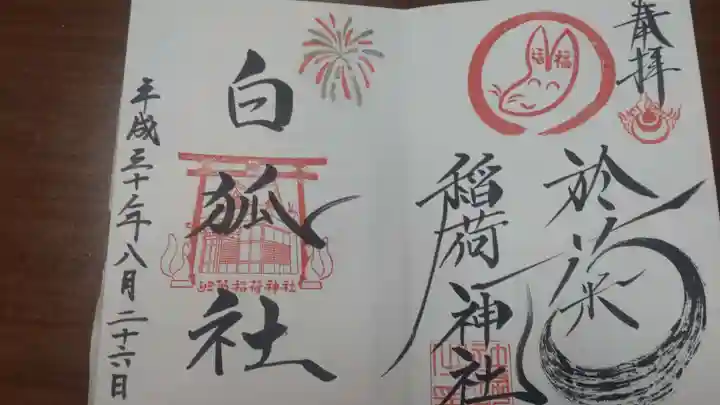 奉拝
於菊
稲荷神社
白狐社
於菊稲荷神社
平成三十年八月二十六日